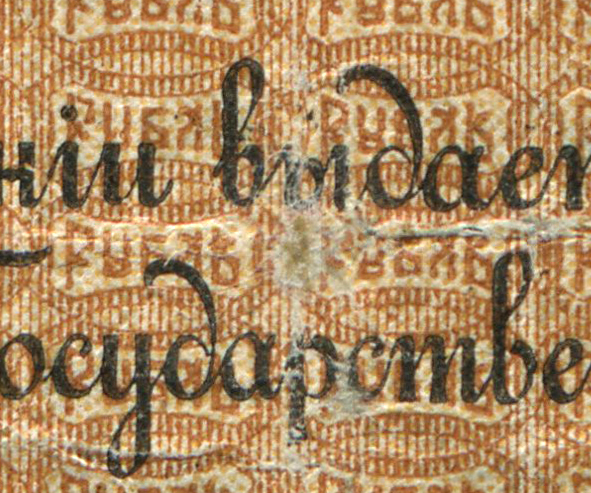 РУБЛЬ РУБЛЬ
РУБЛЬ РУБЛЬ
нiи выдает
РУБЛЬ РУБЛЬ
осударстве